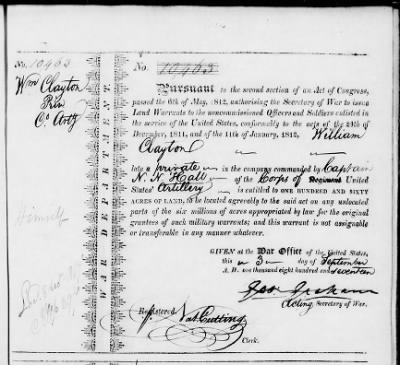 No. 10463
Wm Clayton
Co. Arty
WAR DEPARTMENT.
No. 10463
Pursuant to the second section of an Act of Congress,
passed the 6th of May, 1812, authorising the Secretary of War to issue
Land Warrants to the noncommissioned Officers and Soldiers enlisted in
the service of the United States, conformably to the acts of the 24th
December, 1811, and of the 11th of January, 1812, William
Clayton
late a private in the company commanded by Captain
N. N. Hall of the Corps of Regiment United
States' Artillery is entitled to ONE HUNDRED AND SIXTY
ACRES OF LAND, to be located agreeably to the said act on any unlocated
parts of the six millions of acres appropriated by law for the original
grantees of such military warrants; and this warrant is not assignable
or transferable in any manner whatever.
GIVEN at the War Office of the United States,
this 3 day of September
A. D. one thousand eight hundred and seventeen
Geo. Graham
Acting Secretary of War.
Registered
Nat Cutting
Clerk.
Himself